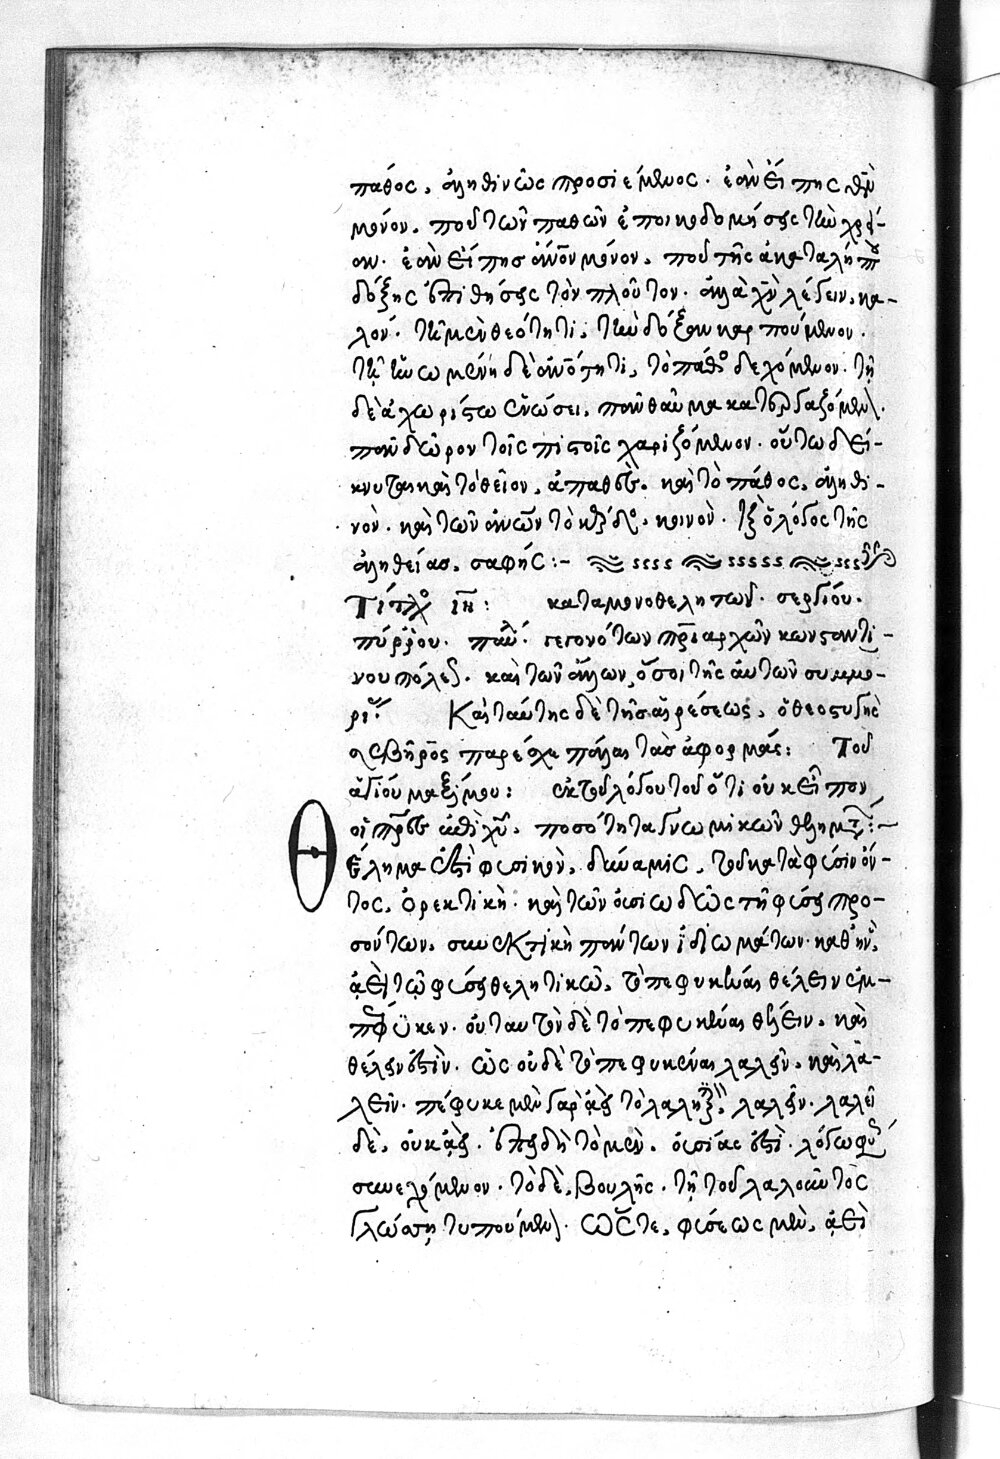 πάθος, ἀληθινῶς προσιέμενος· ἐὰν εἴπῃς θεὸν
μόνον, ποῦ τῶν παθῶν ἐποικοδομήσεις τὴν χρείαν·
ἐὰν εἴπῃς ἄνθρωπον μόνον, ποῦ τῆς ἀκαταλήπτου
δόξης ἐπιθήσεις τὸν πλοῦτον· ἀλλὰ χριστὸν λέγειν, κα-
λόν· τῇ μὲν θεότητι, τὴν δόξαν καρπούμενον·
τῇ ἑνωμένῃ δὲ ἀνθρωπότητι, τὸ πάθος δεχόμενον· τῇ
δὲ ἀχωρίστω ἑνώσει,
πᾶν δῶρον τοῖς πιστοῖς χαριζόμενον· οὕτω δεί-
κνυται καὶ τὸ θεῖον, ἀπαθὲς· καὶ τὸ πάθος, ἀληθι-
νὸν· καὶ τῶν ἀνθρώπων τὸ κέρδος, κοινὸν· καὶ ὁ λόγος τῆς
ἀληθείας, σαφής:-
Τίτλος ιη: κατὰ μονοθελητῶν· σεργίου·
πύρρου· παύλου· γεγονότων πατριαρχῶν κωνσταντι-
νουπόλεως· καὶ τῶν ἄλλων, ὅσοι τῆς αὐτῶν συμμο-
ρίας· Καὶ ταύτης δὲ τῆς αἱρέσεως, ὁ θεοστυγὴς
σεβῆρος παρέσχε πάλαι τὰς ἀφορμάς: Τοῦ
ἁγίου μαξίμου: ἐκ τοῦ λόγου τοῦ ὅτι οὐκ εἶπον
οἱ πατέρες ἐπὶ χριστοῦ, ποσότητα γνωμικῶν θελημάτων:-
Θέλημα ἐστὶ φυσικὸν, δύναμις, τοῦ κατὰ φύσιν ὄν-
τος, ὀρεκτικὴ· καὶ τῶν οὐσιωδῶς τῇ φύσει προ-
σόντων, συνεκτικὴ πάντων ἰδιωμάτων· καθ' ἣν,
ἀεὶ τῷ φύσει θελητικῷ, τὸ πεφυκέναι θέλειν ἐμ-
πέφυκεν· οὐ ταυτὸν δὲ τὸ πεφυκέναι θέλειν, καὶ
θέλειν ἐστὶν· ὡς οὐδὲ τὸ πεφυκέναι λαλεῖν, καὶ λα-
λεῖν· πέφυκε μὲν γὰρ ἀεὶ τὸ λαλητικὸν λαλεῖν· λαλεῖ
δὲ, οὐκ ἀεὶ· ἐπειδὴ τὸ μὲν, οὐσίας ἐστὶ· λόγω φύσεως
συνεχόμενον· τὸ δὲ, βουλῆς· τῇ τοῦ λαλοῦντος
γνώμῃ τυπούμενον· ὥστε, φύσεως μὲν, ἀεὶ